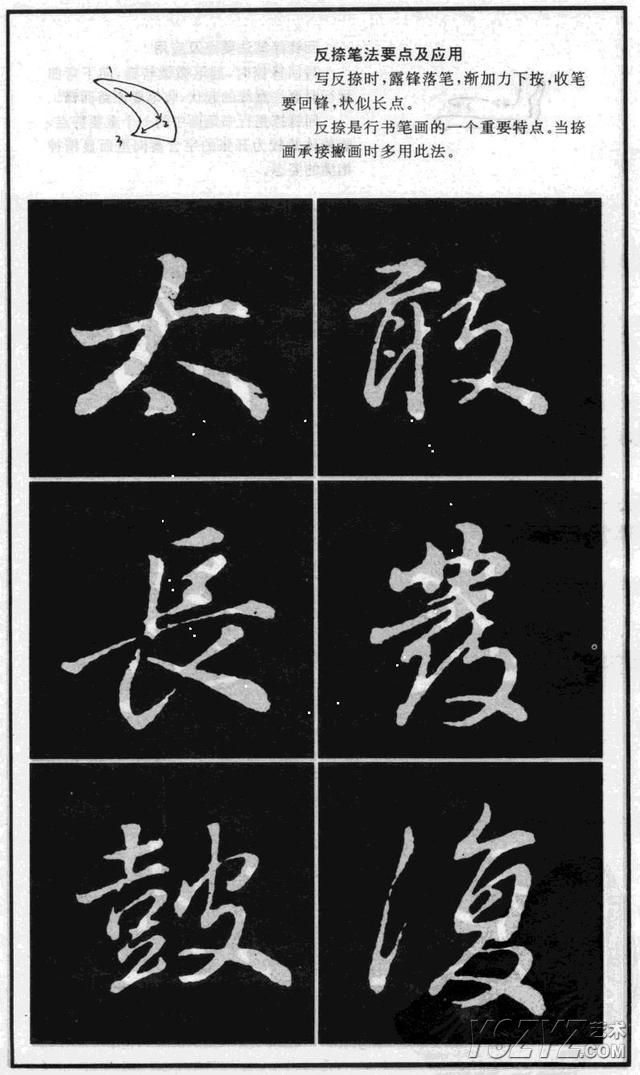 反捺笔法要点及应用
写反捺时，露锋落笔，渐加力下按，收笔
要回锋，状似长点。
反捺是行书笔画的一个重要特点。当捺
画承接撇画时多用此法。
1
2
3
敢
發
復
太
長
皷
YSZYZ艺术
.COM